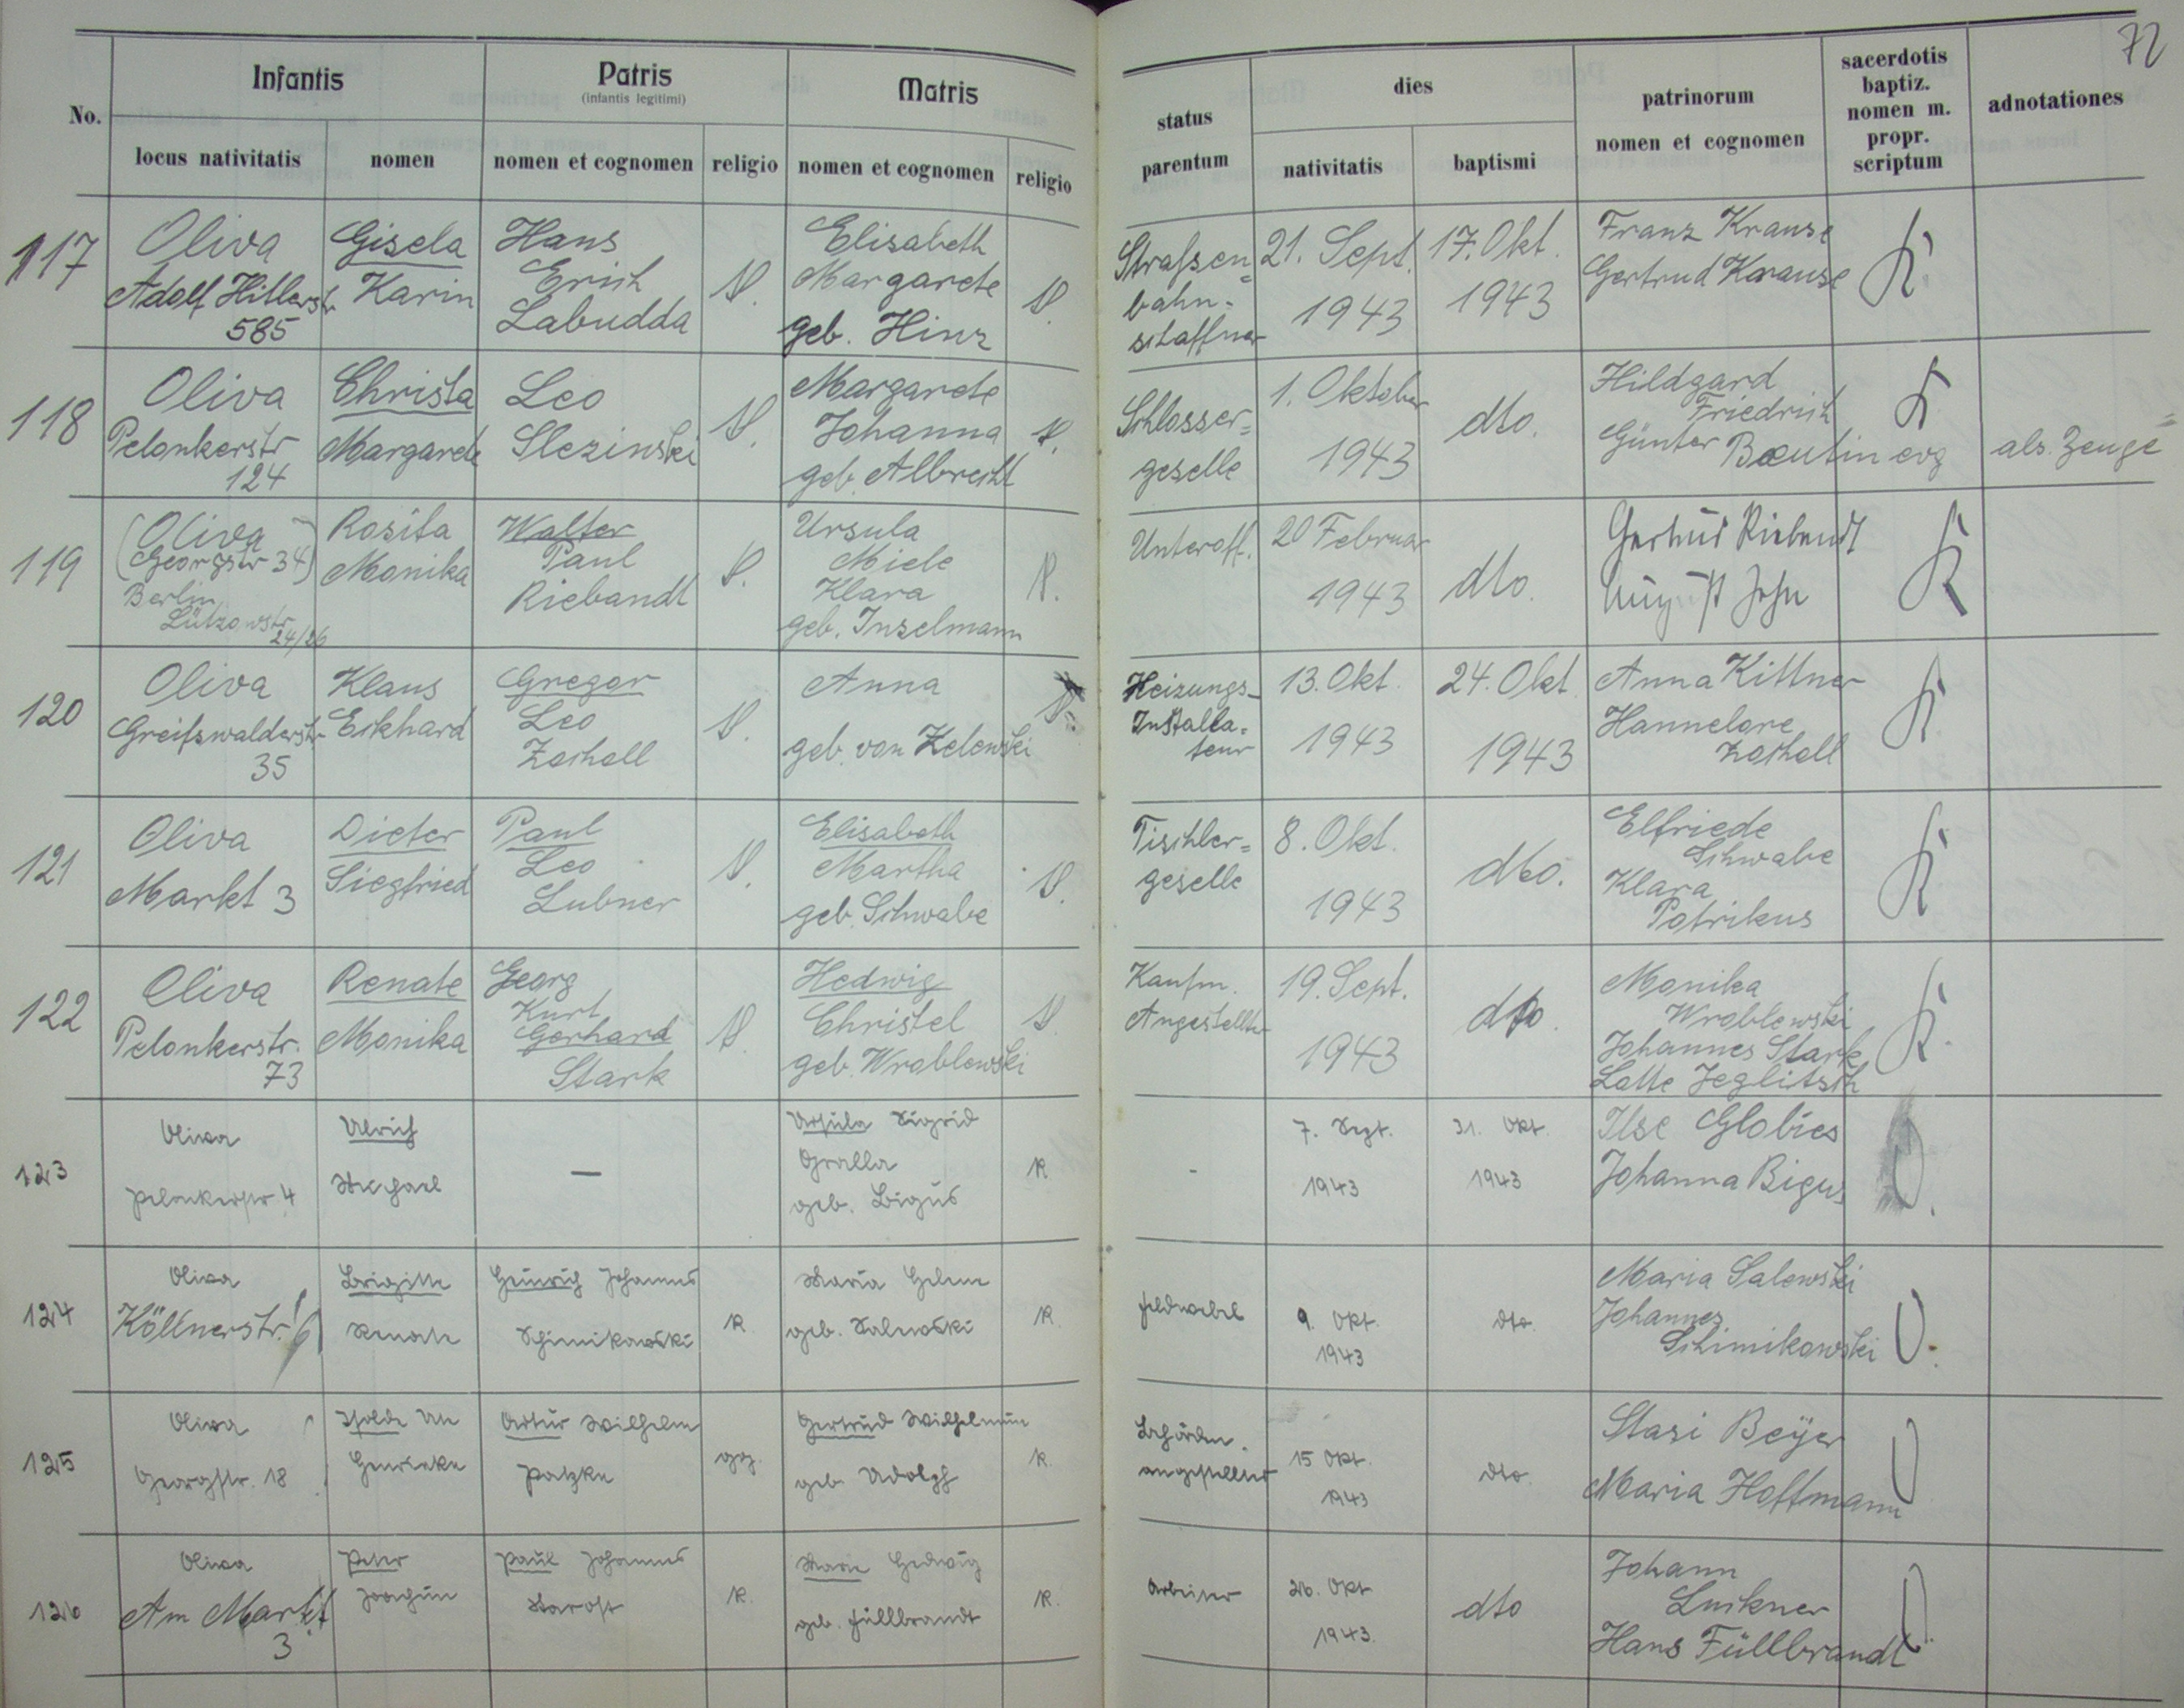 72
Infantis
Patris
(infantis legitimi)
Matris
status
parentum
dies
patrinorum
nomen et cognomen
sacerdotis
baptiz.
nomen m.
propr.
scriptum
adnotationes
No.
locus nativitatis
nomen
nomen et cognomen
religio
nomen et cognomen
religio
nativitatis
baptismi
117
Oliva
Adolf Hitlerstr.
585
Gisela
Karin
Hans
Erich
Labudda
Elisabeth
Margarete
geb. Hinz
Straßen=
bahn=
schaffner
21. Sept.
1943
17. Okt.
1943
Franz Krause
Gertrud Krause
K.
118
Oliva
Pelonkerstr
124
Christa
Margarete
Leo
Slezinski
Margarete
Johanna
geb. Albrecht
Schlosser=
geselle
1. Oktober
1943
dto.
Hildgard
Friedrich
Günter Beutin evg
K
als Zeuge
119
(Oliva
Georgstr 34)
Berlin
Lützowstr
24/26
Rosita
Monika
Walter
Paul
Riebandt
Ursula
Miele
Klara
geb. Inselmann
Unteroff.
20 Februar
1943
dto.
Gertrud Riebandt
August John
K
120
Oliva
Greifswalderstr
35
Klaus
Eckhard
Gregor
Leo
Zachall
Anna
geb. von Zelewski
Heizungs-
Installa=
teur
13. Okt.
1943
24. Okt.
1943
Anna Kittner
Hannelore
Zachall
K
121
Oliva
Markt 3
Dieter
Siegfried
Paul
Leo
Lubner
Elisabeth
Martha
geb. Schwabe
Tischler=
geselle
8. Okt.
1943
dto.
Elfriede
Schwabe
Klara
Patrikus
K
122
Oliva
Pelonkerstr.
73
Renate
Monika
Georg
Kurt
Gerhard
Stark
Hedwig
Christel
geb. Wroblewski
Kaufm.
Angestellter
19. Sept.
1943
dto.
Monika
Wroblewski
Johannes Stark
Lotte Jeglitsch
K.
123
Oliva
Pelonkerstr 4
Ulrich
Michael
—
Ursula Sigrid
Gralla
geb. Bigus
K
-
7. Sept.
1943
31. Okt.
1943
Ilse Globies
Johanna Bigus
124
Oliva
Köllnerstr. 6
Brigitte
Renate
Heinrich Johannes
Schimikowski
K.
Maria Helene
geb. Salewski
K.
Feldwebel
9. Okt.
1943
dto.
Maria Salewski
Johannes
Schimikowski
125
Oliva
Georgstr. 18
Isolde Ute
Henrieke
Artur Wilhelm
Patzke
Gertrud Wilhelmine
geb. Adolph
K.
Behörden
angestellter
15 Okt.
1943
dto.
Stasi Beyer
Maria Hoffmann
126
Oliva
Am Markt
3
Peter
Joachim
Paul Johannes
Starost
K.
Marie Hedwig
geb. Füllbrandt
K.
Arbeiter
26. Okt
1943.
dto
Johann
Luckner
Hans Füllbrandt